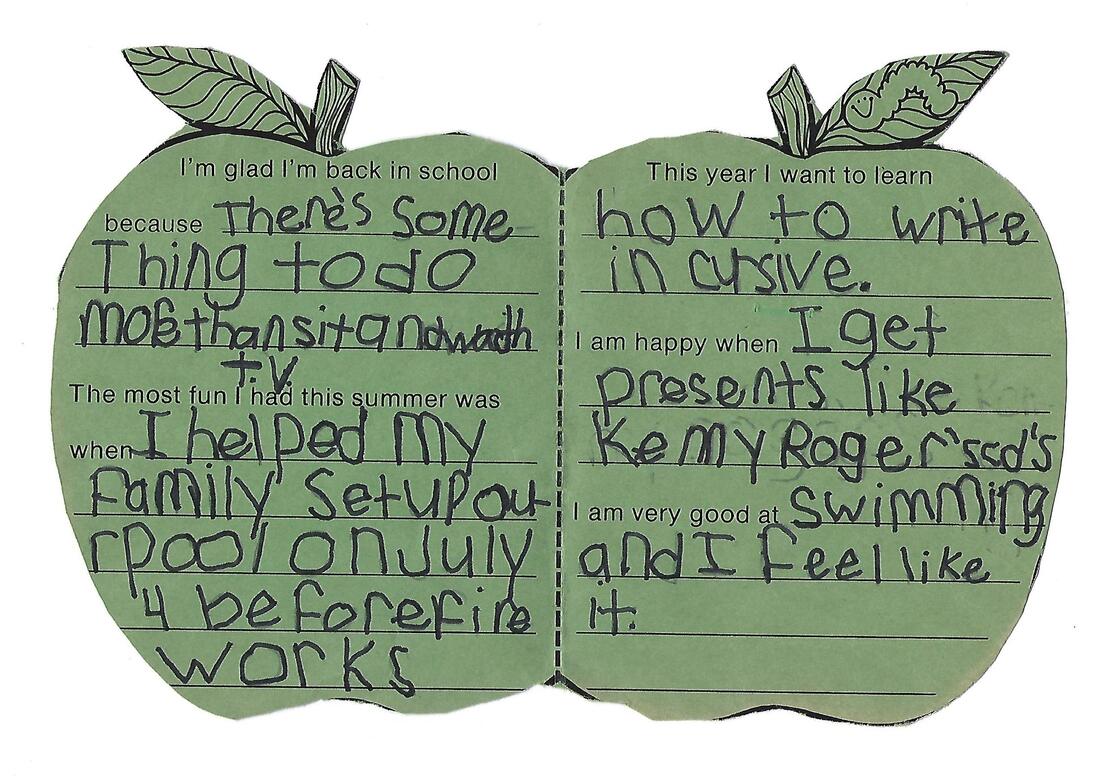 I'm glad I'm back in school
because There's Some
Thing to do
more than sit and watch
T.V
The most fun I had this summer was
when I helped my
Family Set up ou
r pool on July
4 before fire
works
This year I want to learn
how to write
in cursive.
I am happy when I get
presents like
Kemmy Roger'scd's
I am very good at swimming
and I feel like
it.